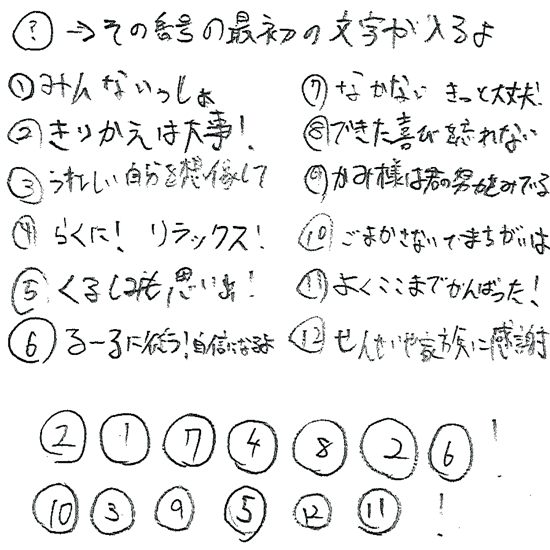 ?→その番号の最初の文字が入るよ
①みんないっしょ
②きりかえは大事!
③うれしい自分を想像して
④らくに! リラックス!
⑤くるしみも思い出!
⑥るーるに従う!自信になるよ
⑦なかない きっと大丈夫!
⑧できた喜び忘れない
⑨かみ様は君の努力をみている
⑩ごまかさないでまちがいは
⑪よくここまでがんばった!
⑫せんせいや家族に感謝
②①⑦④⑧②⑥!
⑩③⑨⑤⑫⑪!